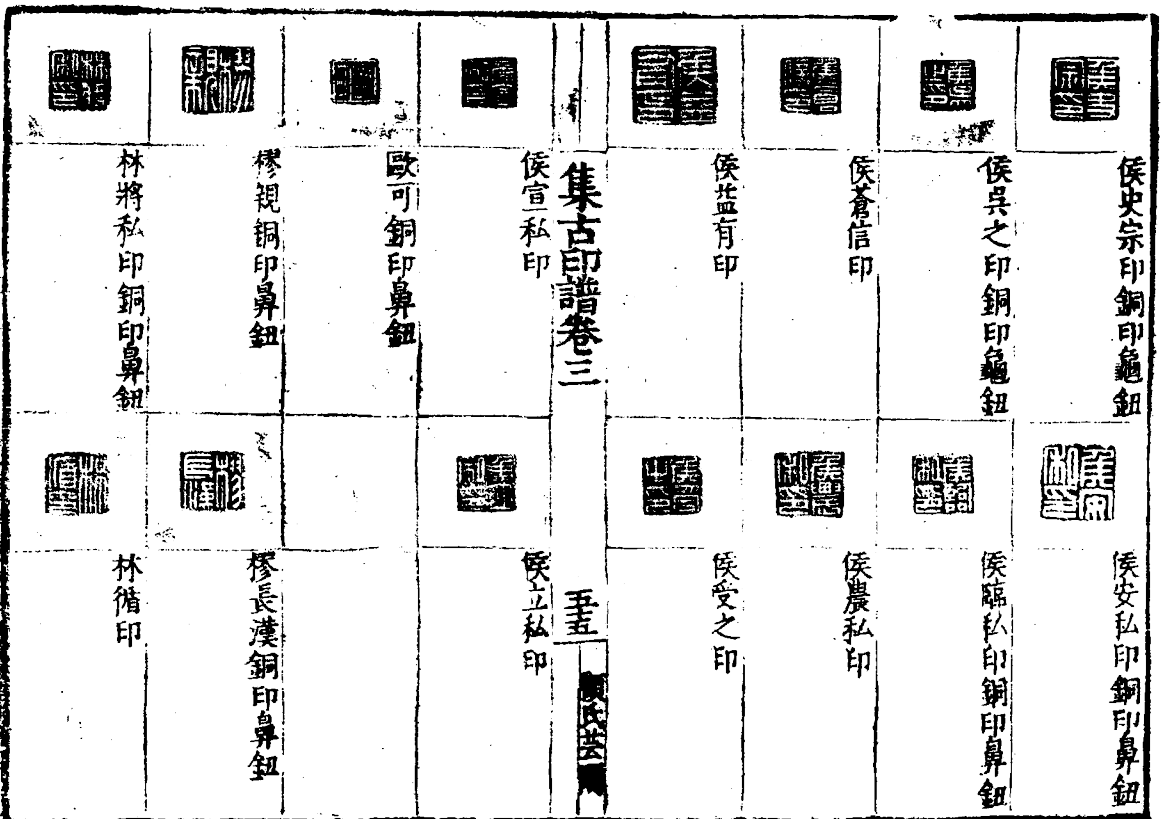 侯史宗印銅印龜鈕
侯吳之印銅印龜鈕
侯蒼信印
侯益有印
侯安私印銅印鼻鈕
侯臨私印銅印鼻鈕
侯農私印
侯受之印
集古印譜卷三
五十五
顧氏芸閣
侯宣私印
歐可銅印鼻鈕
樛親銅印鼻鈕
林將私印銅印鼻鈕
侯立私印
樛長漢銅印鼻鈕
林循印